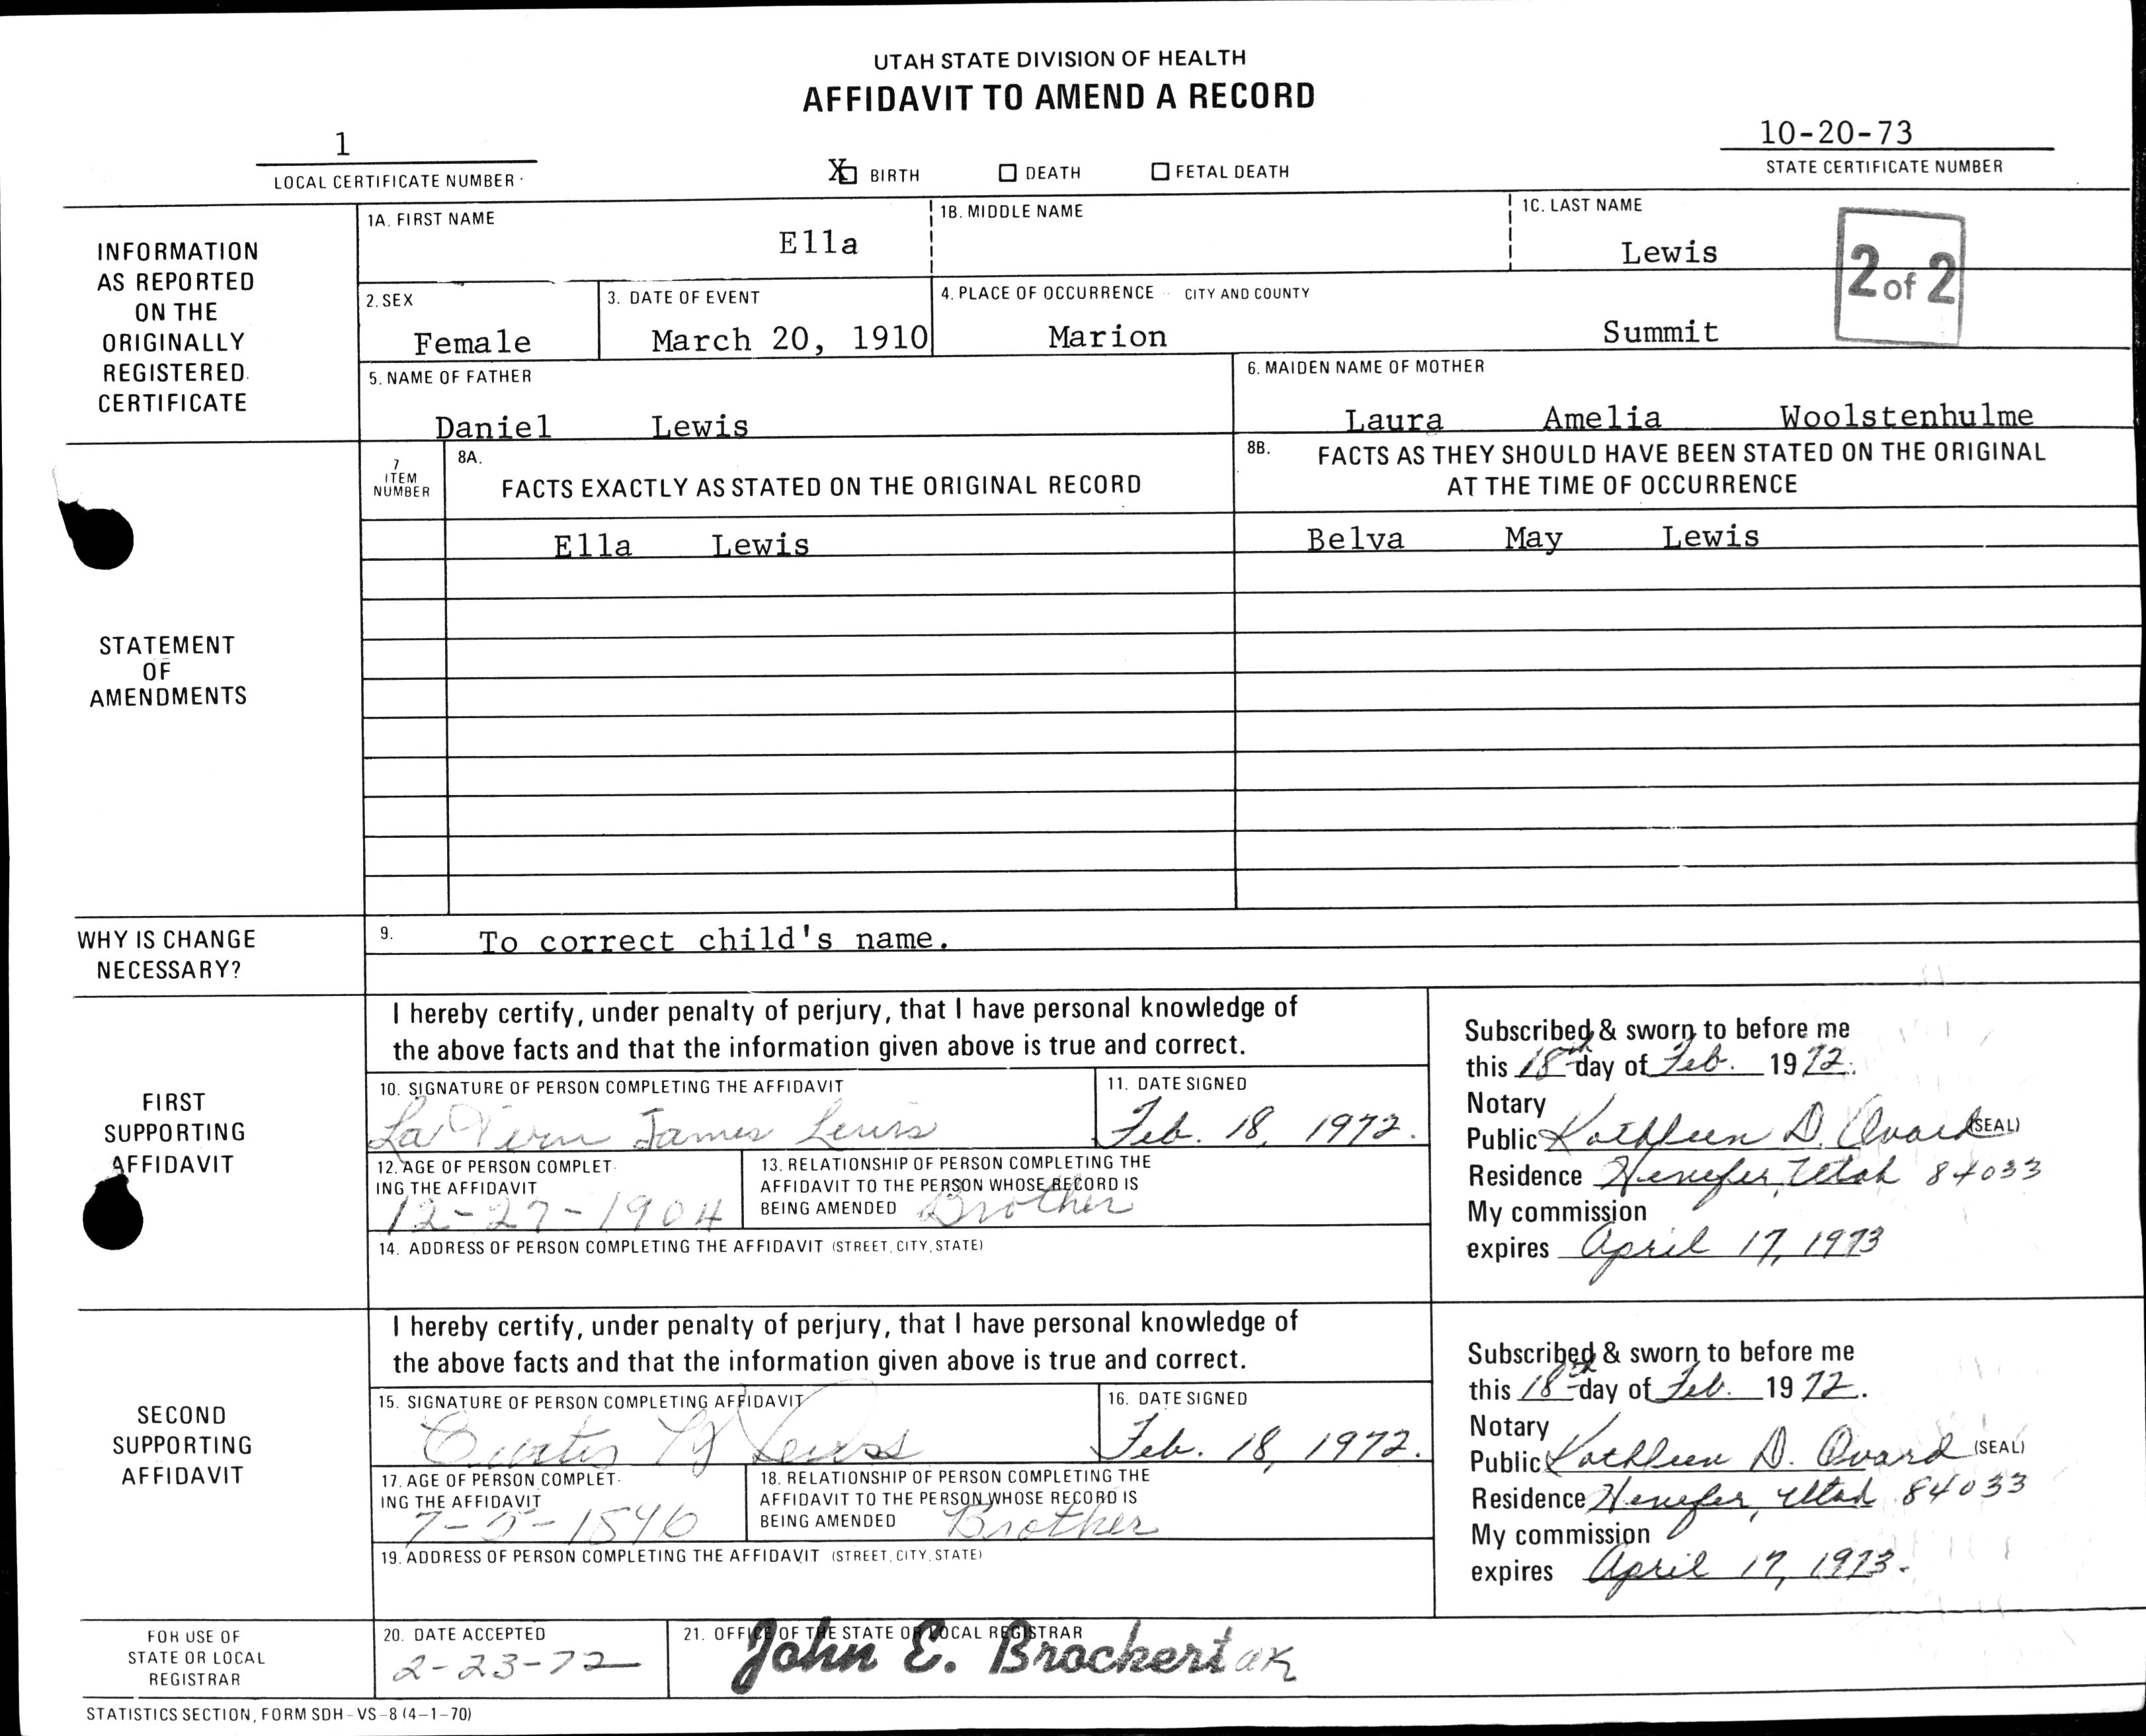 UTAH STATE DIVISION OF HEALTH
AFFIDAVIT TO AMEND A RECORD
1
LOCAL CERTIFICATE NUMBER
X BIRTH DEATH FETAL DEATH
10-20-73
STATE CERTIFICATE NUMBER
INFORMATION
AS REPORTED
ON THE
ORIGINALLY
REGISTERED
CERTIFICATE
1A. FIRST NAME
Ella
1B. MIDDLE NAME
1C. LAST NAME
Lewis
2 of 2
2. SEX
Female
3. DATE OF EVENT
March 20, 1910
4. PLACE OF OCCURRENCE -- CITY AND COUNTY
Marion Summit
5. NAME OF FATHER
Daniel Lewis
6. MAIDEN NAME OF MOTHER
Laura Amelia Woolstenhulme
STATEMENT
OF
AMENDMENTS
7
ITEM
NUMBER
8A.
FACTS EXACTLY AS STATED ON THE ORIGINAL RECORD
8B. FACTS AS THEY SHOULD HAVE BEEN STATED ON THE ORIGINAL
AT THE TIME OF OCCURRENCE
Ella Lewis
Belva May Lewis
WHY IS CHANGE
NECESSARY?
9. To correct child's name.
FIRST
SUPPORTING
AFFIDAVIT
I hereby certify, under penalty of perjury, that I have personal knowledge of
the above facts and that the information given above is true and correct.
10. SIGNATURE OF PERSON COMPLETING THE AFFIDAVIT
La Vern James Lewis
11. DATE SIGNED
Feb. 18, 1972.
12. AGE OF PERSON COMPLET-
ING THE AFFIDAVIT
12-27-1904
13. RELATIONSHIP OF PERSON COMPLETING THE
AFFIDAVIT TO THE PERSON WHOSE RECORD IS
BEING AMENDED Brother
14. ADDRESS OF PERSON COMPLETING THE AFFIDAVIT (STREET, CITY, STATE)
Subscribed & sworn to before me
this 18th day of Feb. 1972.
Notary
Public Kathleen D. Ovard (SEAL)
Residence Henefer, Utah 84033
My commission
expires April 17, 1973
SECOND
SUPPORTING
AFFIDAVIT
I hereby certify, under penalty of perjury, that I have personal knowledge of
the above facts and that the information given above is true and correct.
15. SIGNATURE OF PERSON COMPLETING AFFIDAVIT
Curtis Lewis
16. DATE SIGNED
Feb. 18, 1972.
17. AGE OF PERSON COMPLET-
ING THE AFFIDAVIT
18. RELATIONSHIP OF PERSON COMPLETING THE
AFFIDAVIT TO THE PERSON WHOSE RECORD IS
BEING AMENDED Brother
19. ADDRESS OF PERSON COMPLETING THE AFFIDAVIT (STREET, CITY, STATE)
Subscribed & sworn to before me
this 18th day of Feb. 1972.
Notary
Public Kathleen D. Ovard (SEAL)
Residence Henefer, Utah 84033
My commission
expires April 17, 1973.
FOR USE OF
STATE OR LOCAL
REGISTRAR
20. DATE ACCEPTED
2-23-72
21. OFFICE OF THE STATE OR LOCAL REGISTRAR
John E. Brockert ak
STATISTICS SECTION, FORM SDH-VS-8 (4-1-70)